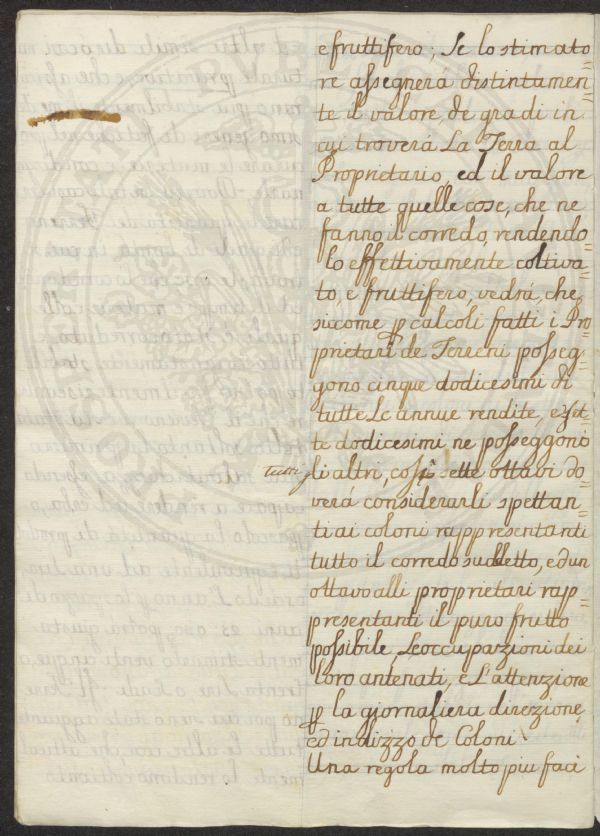 e fruttifero; Se lo stimato=
re assegnerá distintamen=
te il valore, de gradi in
cui troverá La Terra al
Proprietario, ed il valore
a tutte quelle cose, che ne
fanno il corredo, rendendo=
lo effettivamente coltiva=
to, e fruttifero, vedrá, che,
siccome ꝑ calcoli fatti i Pro=
prietari de Terreni posseg=
gono cinque dodicesimi di
tutte Le annue rendite, e set=
te dodicesimi ne posseggono
tutti gli altri, così sette ottavi do=
verá considerarli spettan=
ti ai coloni rappresentanti
tutto il corredo suddetto, ed un
ottavo alli proprietari rap=
presentanti il puro frutto
possibile, Le occupazioni dei
loro antenati, e L'attenzione
ꝑ la giornaliera direzione,
ed indizzo de Coloni.
Una regola molto piu faci